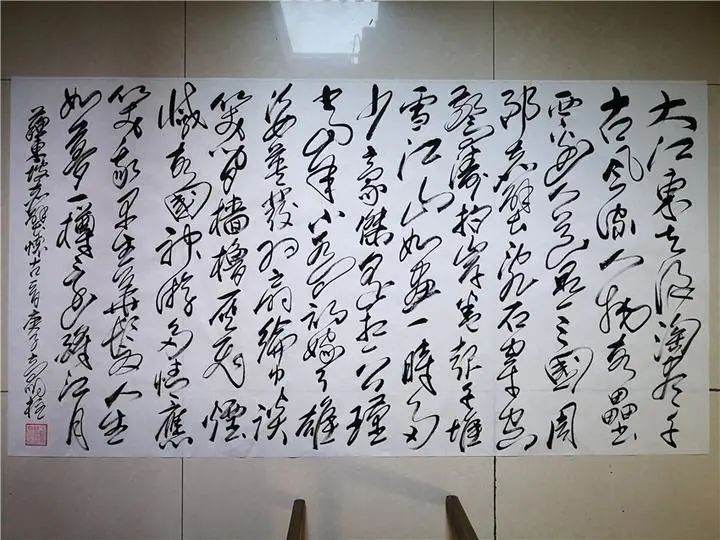 大江東去浪淘盡千
古風流人物故壘
西邊人道是三國周
郎赤壁乱石穿空
驚濤拍岸卷起千堆
雪江山如畫一時多
少豪傑遥想公瑾
當年小喬初嫁了雄
姿英發羽扇綸巾談
笑間檣櫓灰飛煙
滅故國神游多情應
笑我早生華髮人生
如夢一樽還酹江月
蘇東坡赤壁懷古 庚子